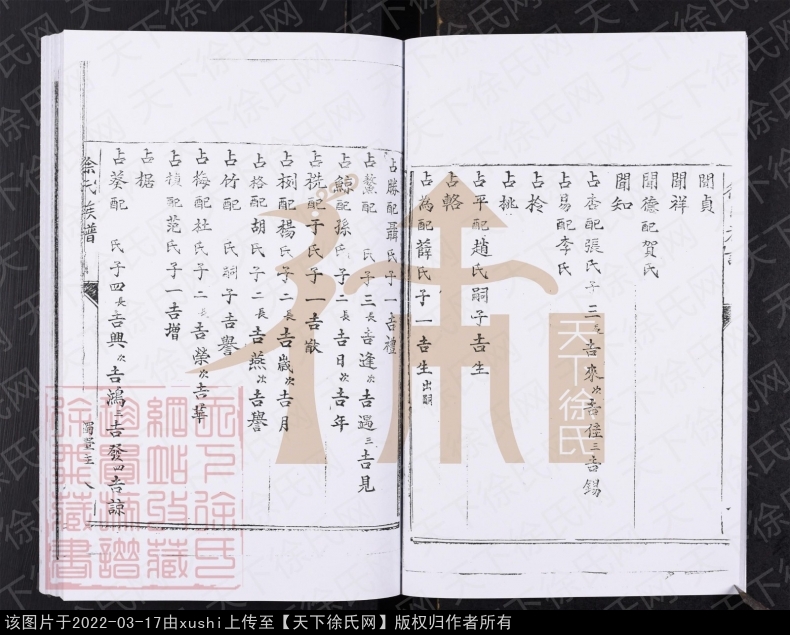 聞貞
聞祥
聞德配賀氏
聞知
占杏配張氏子三長吉來次吉佳三吉錫
占易配李氏
占拎
占桃
占平配趙氏嗣子吉生
占輅
占為配薛氏子一吉生出嗣
占勝配聶氏子一吉禮
占鰲配 氏子三長吉逢次吉遇三吉見
占鯨配孫氏子二長吉日次吉年
占桄配于氏子一吉猷
占栵配楊氏子二長吉歲次吉月
占格配胡氏子二長吉燕次吉譽
占竹配 氏嗣子吉譽
占梅配杜氏子二長吉榮次吉華
占楨配范氏子一吉增
占椐
占葵配 氏子四長吉興次吉鴻三吉發四吉諒
徐氏族譜
天下徐氏
天下徐氏网
该图片于2022-03-17由xushi上传至【天下徐氏网】版权归作者所有